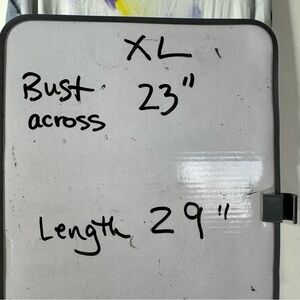 XL
Bust 23"
across
Length 29"